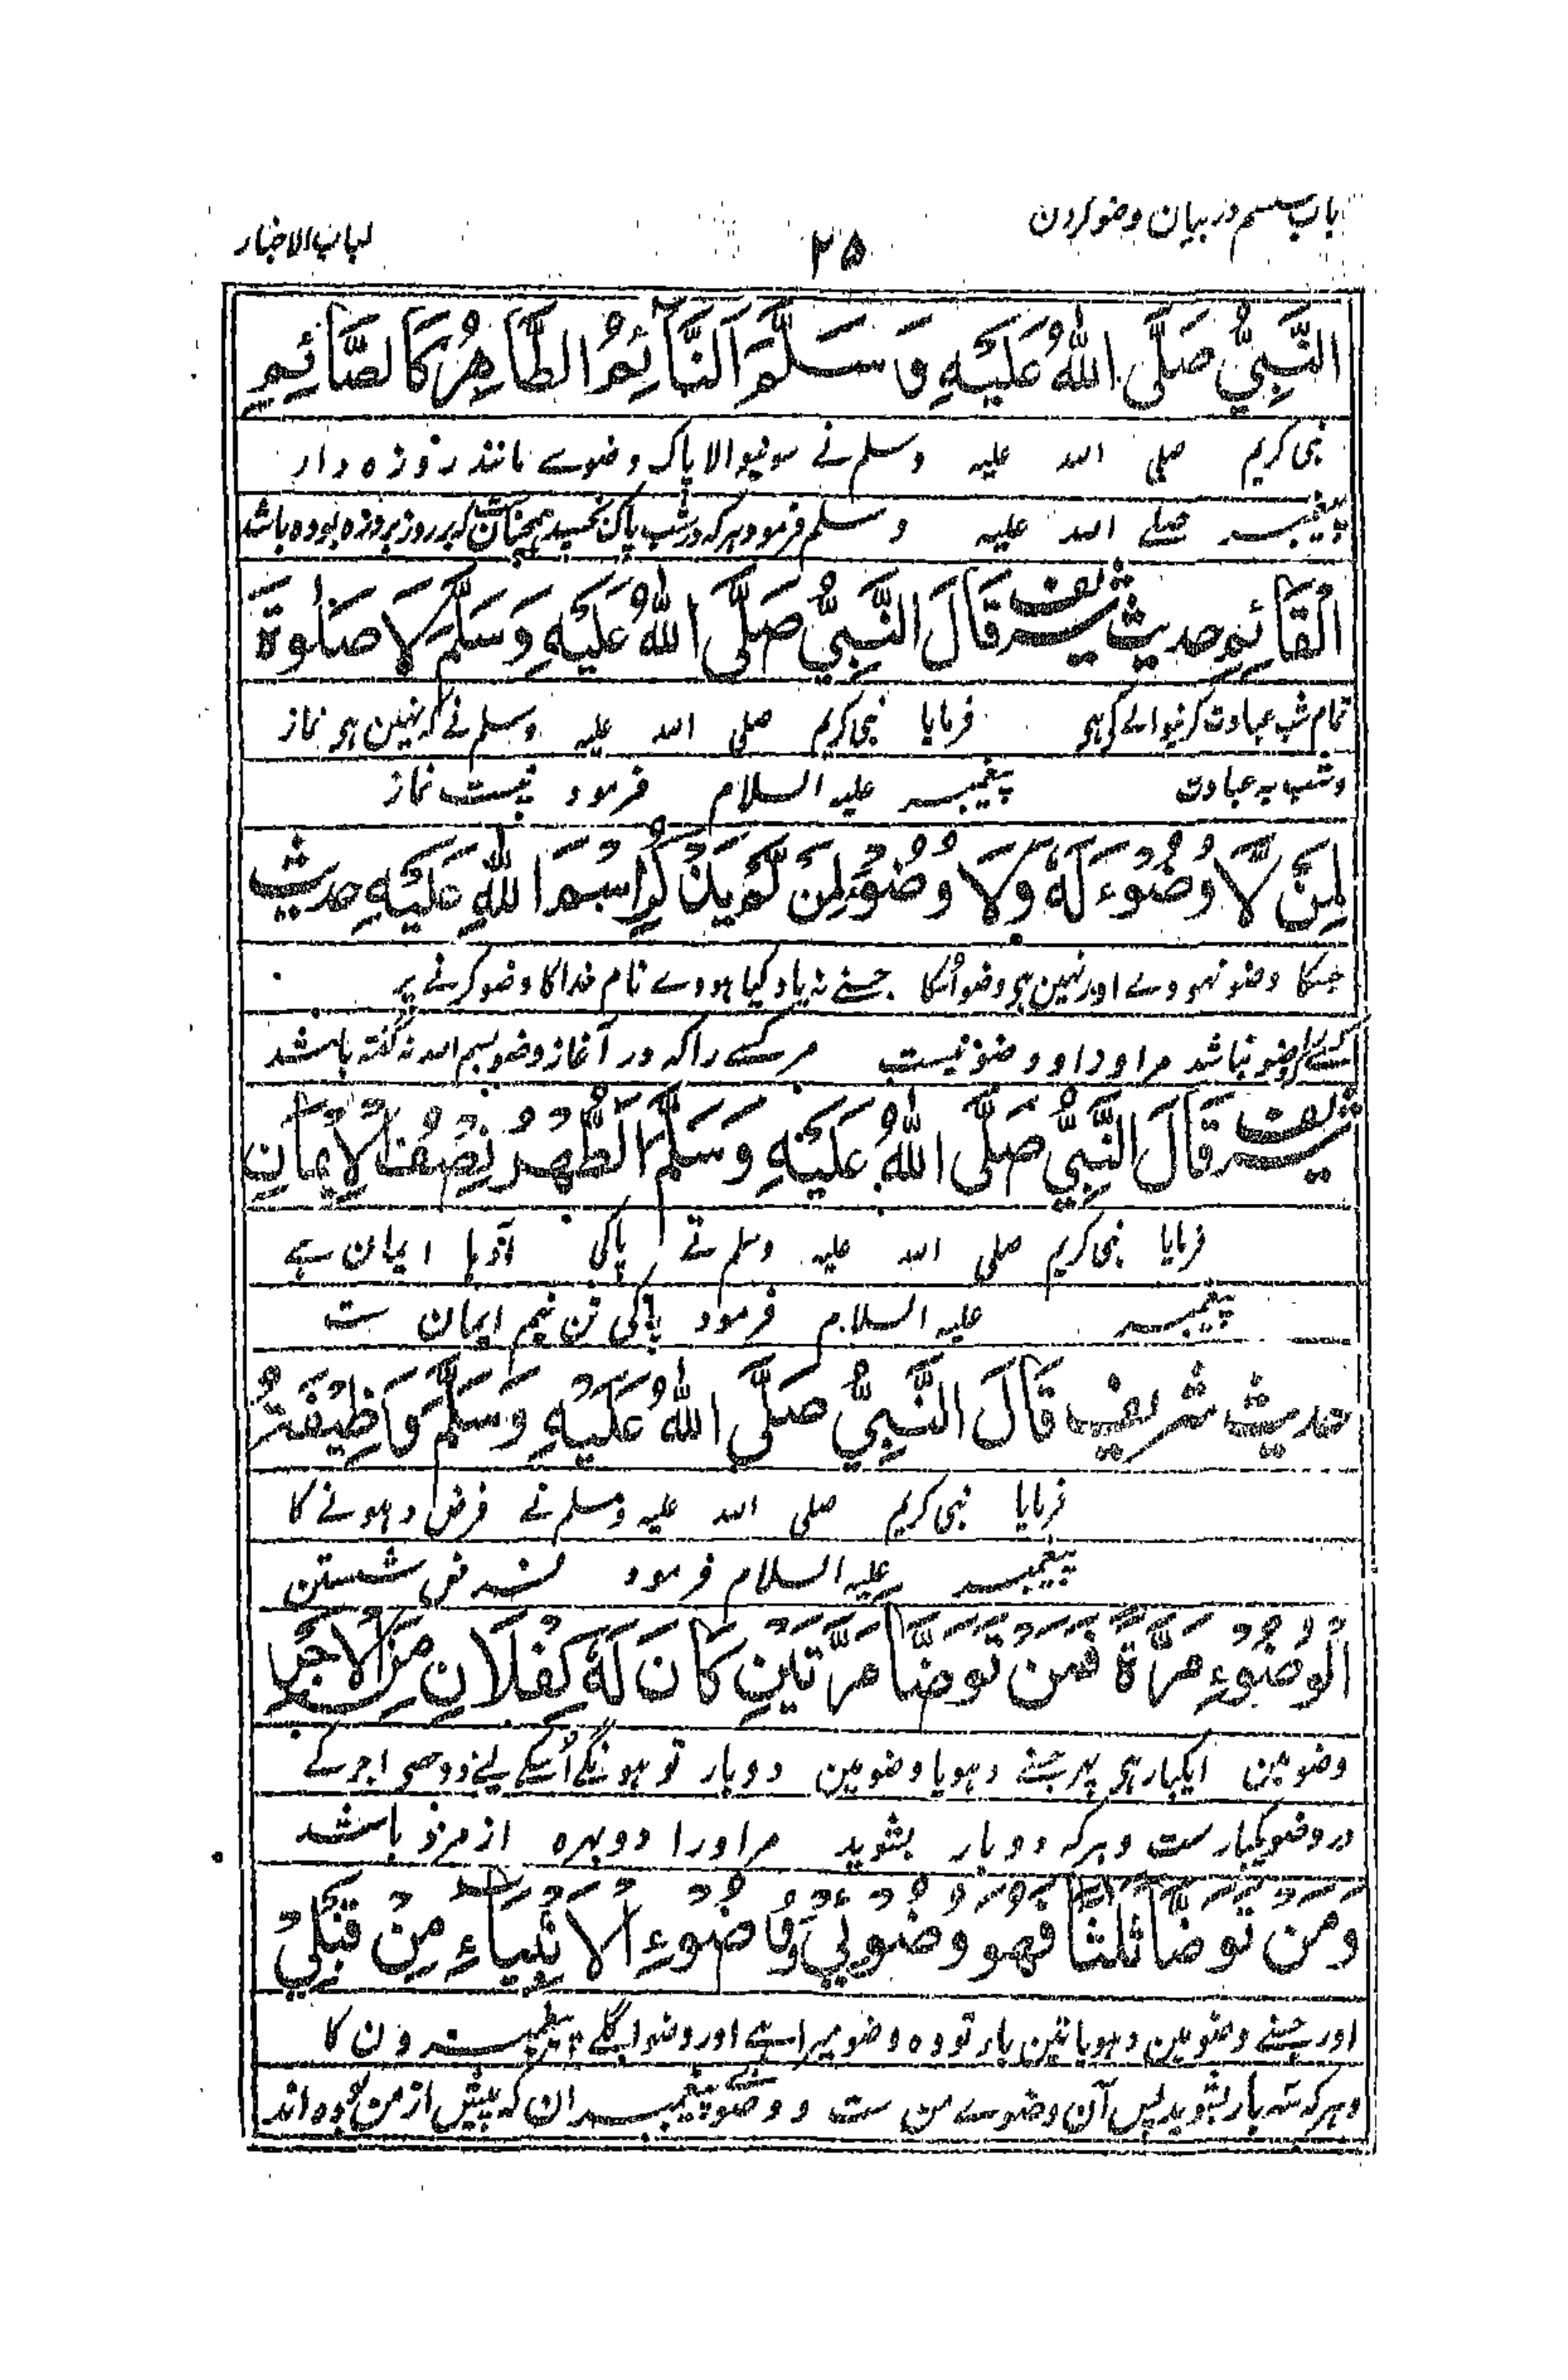 باب ششم در بیان وضو کردن
۲۵
لباب الاخبار
النَّبِيُّ صَلَّى اللهُ عَلَيْهِ وَسَلَّمَ اَلنَّائِمُ الطَّاهِرُ كَالصَّائِمِ
نبی کریم صلی اللہ علیہ وسلم نے سونیوالا پاک وضوے مانند روزہ دار
پیغمبر صلے اللہ علیہ وسلم فرمود ہر کہ در شب پاک بخسپد ہمچنانست کہ بروز بروزہ بودہ باشد
الْقَائِمِ حديث شريف قَالَ النَّبِيُّ صَلَّى اللهُ عَلَيْهِ وَسَلَّمَ لَا صَلٰوةَ
تمام شب عبادت کرنیوالے کی ہی فرمایا نبی کریم صلی اللہ علیہ وسلم نے کہ نہین ہی نماز
وشب بہ عبادت پیغمبر علیہ السلام فرمود نیست نماز
لِمَنْ لَّا وُضُوْءَ لَهٗ وَلَا وُضُوْءَ لِمَنْ لَّمْ يَذْكُرِ اسْمَ اللهِ عَلَيْهِ حديث
جسکا وضو نہووے اور نہین ہی وضو اُسکا جسنے نہ یاد کیا ہووے نام خدا کا وضو کرنے پر
کسے را کہ وضو نباشد مر اورا و وضو نیست مر کسے را کہ در آغاز وضو بسم اللہ نہ گفتہ باشد
شريف قَالَ النَّبِيُّ صَلَّى اللهُ عَلَيْهِ وَسَلَّمَ الطُّهْرُ نِصْفُ الْاِيْمَانِ
فرمایا نبی کریم صلی اللہ علیہ وسلم نے پاکی آدہا ایمان ہے
پیغمبر علیہ السلام فرمود پاکی تن نیم ایمان ست
حديث شريف قَالَ النَّبِيُّ صَلَّى اللهُ عَلَيْهِ وَسَلَّمَ وَظِيْفَةُ
فرمایا نبی کریم صلی اللہ علیہ وسلم نے فرض دہونے کا
پیغمبر علیہ السلام فرمود فرض شستن
الْوُضُوْءِ مَرَّةً فَمَنْ تَوَضَّأَ مَرَّتَيْنِ كَانَ لَهٗ كِفْلَانِ مِنَ الْاَجْرِ
وضومین ایکبار ہی پھر جسنے دہویا وضومین دوبار تو ہونگے اُسکے لیے دو حصے اجر کے
در وضو یکبارست وہر کہ دوبار بشوید مر اورا دو بہرہ از مزد باشد
وَمَنْ تَوَضَّأَ ثَلٰثًا فَهُوَ وُضُوْئِيْ وَوُضُوْءُ الْاَنْبِيَاءِ مِنْ قَبْلِيْ
اور جسنے وضومین دہویا تین بار تو وہ وضو میرا ہے اور وضو اگلے پیغمبرون کا
وہر کہ سہ بار بشوید پس آن وضوے من ست و وضوے پیغمبران کہ پیش از من بودہ اند